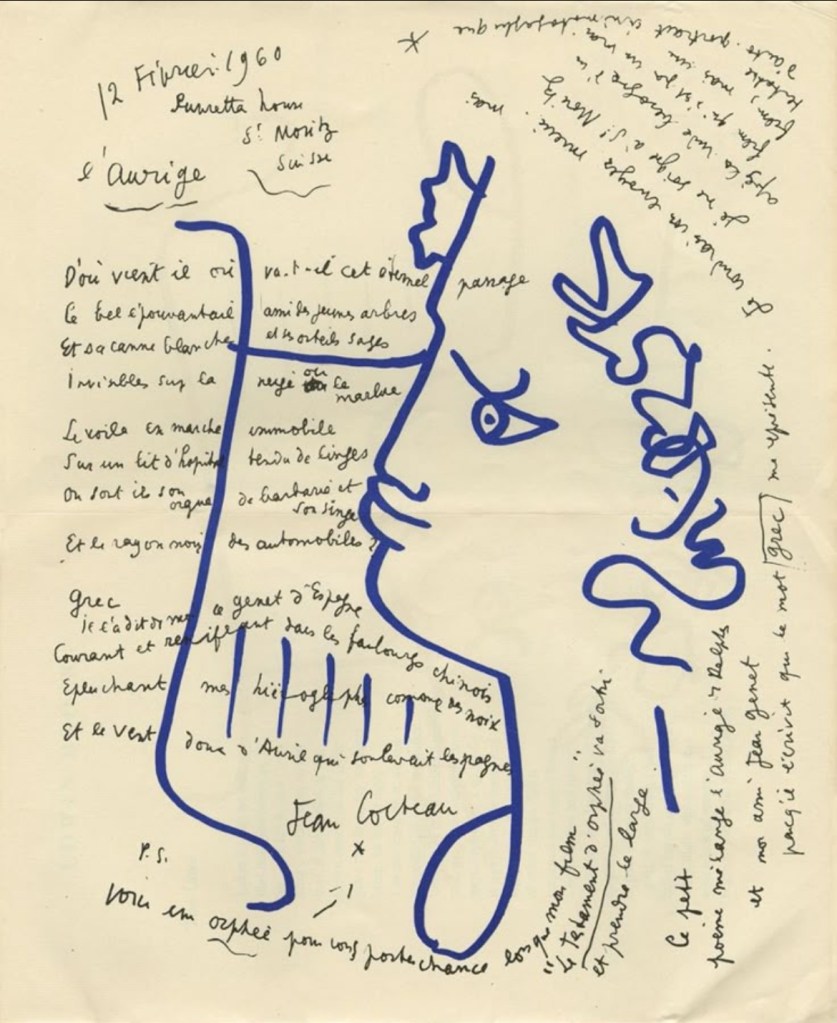 12 Février 1960
Suvretta house
St Moritz
Suisse
l'Aurige
D'où vient il où va-t-il cet éternel passage
Ce bel épouvantail ami des jeunes arbres
Et sa canne blanche et ses orteils sages
Invisibles sur la neige ou le
marbre
Le voila en marche immobile
Sur un lit d'hopital tendu de linges
Ou sont ils son orgue de barbarie et
son singe
Et le rayon noir des automobiles ?
Grec
ce genet d'Espagne
Courant et reniflant dans les faubourgs chinois
Epluchant mes hiéroglyphes comme des noix
Et le vent doux d'Avril qui soulevait les pagnes
Jean Cocteau
P.S.
Voici un orphée pour vous porter chance lorsque mon film
"Le testament d'orphée" va sortir
et prendre le large
Ce petit
poème mélange l'aurige de Delphes
et mon ami Jean Genet
parcequ'il écrivit que le mot grec me représente.
Je voudrais vous envoyer mieux. mais
je me soigne à St Moritz
après la rude besogne d'un
film qui n'est pas un vrai
film, mais un
d'auto-portrait cinématographique